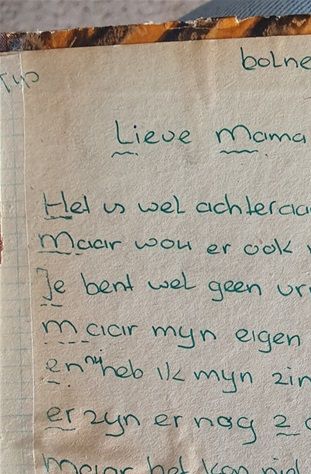 Typ
bolne
Lieve Mama
Het is wel achteraa
Maar wou er ook
Je bent wel geen vri
maar myn eigen
en nu heb ik myn zin
er zyn er nog z
maar het kan niet